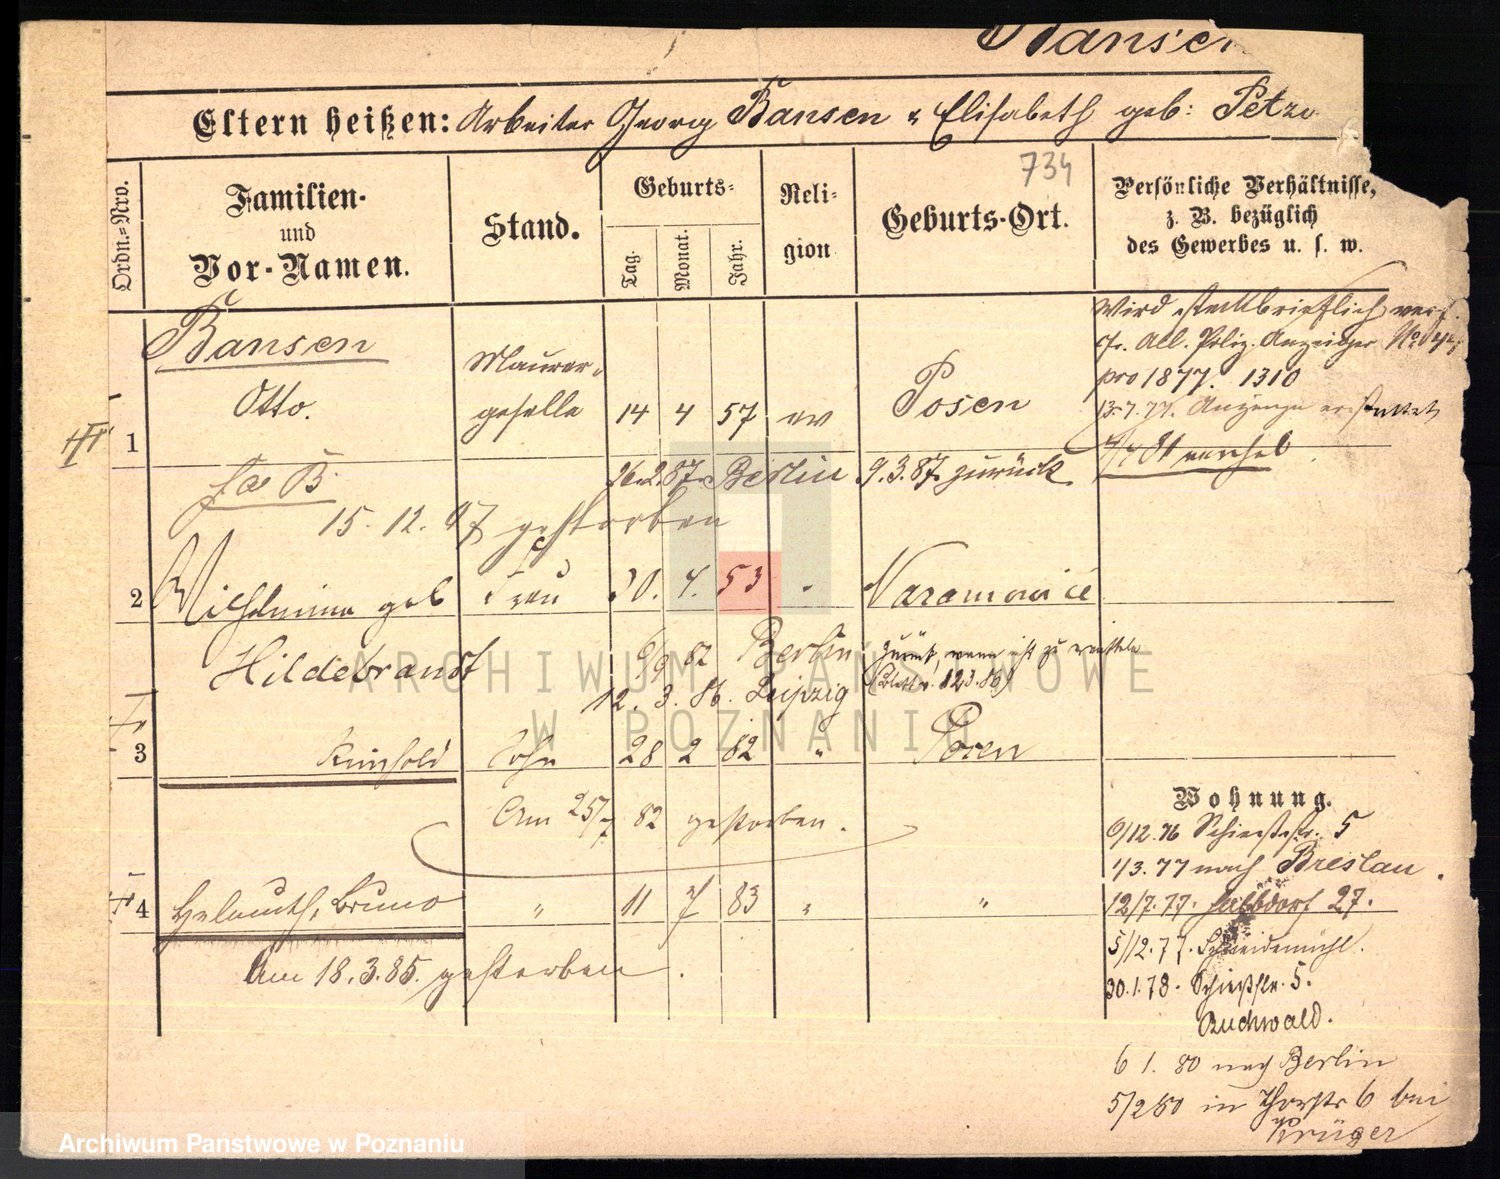 Bansen
Eltern heißen: Arbeiter Georg Bansen u Elisabeth geb: Petzo
734
Ordn.=Nro.
Familien-
und
Vor-Namen.
Stand.
Geburts=
Tag.
Monat.
Jahr.
Reli=
gion
Geburts-Ort.
Persönliche Verhältnisse,
z. B. bezüglich
des Gewerbes u. s. w.
Wird steckbrieflich verf.
All. Poliz. Anzeiger No
pro 1877. 1310
13.7.77. Anzeige erstattet
Bansen
Maurer-
Otto.
geselle
14 4 57 ev Posen
1
26.2.87. Berlin 9.3.87. zurück
15. 12. 87 gestorben
2 Wilhelmine geb Frau 20. 4. 53 " Naramowice
Hildebrandt
6/9 82 Berlin
12. 3. 86. Leipzig
3 Reinhold Sohn 28 2 82 " Posen
Am 25/7 82 gestorben.
4 Helmuth, Bruno " 11 7 83 " "
Am 18.3.85. gestorben.
Wohnung.
6/12.76 Schiesstr. 5
1/3.77 nach Breslau.
12/7.77. Halbdorf 27.
5/12.77. Schneidemühl.
30.1.78. Schießstr. 5.
Buchwald.
6 1. 80 nach Berlin
5/2 80 in Thorstr 6 bei
Krüger
ARCHIWUM PAŃSTWOWE
W POZNANIU
Archiwum Państwowe w Poznaniu